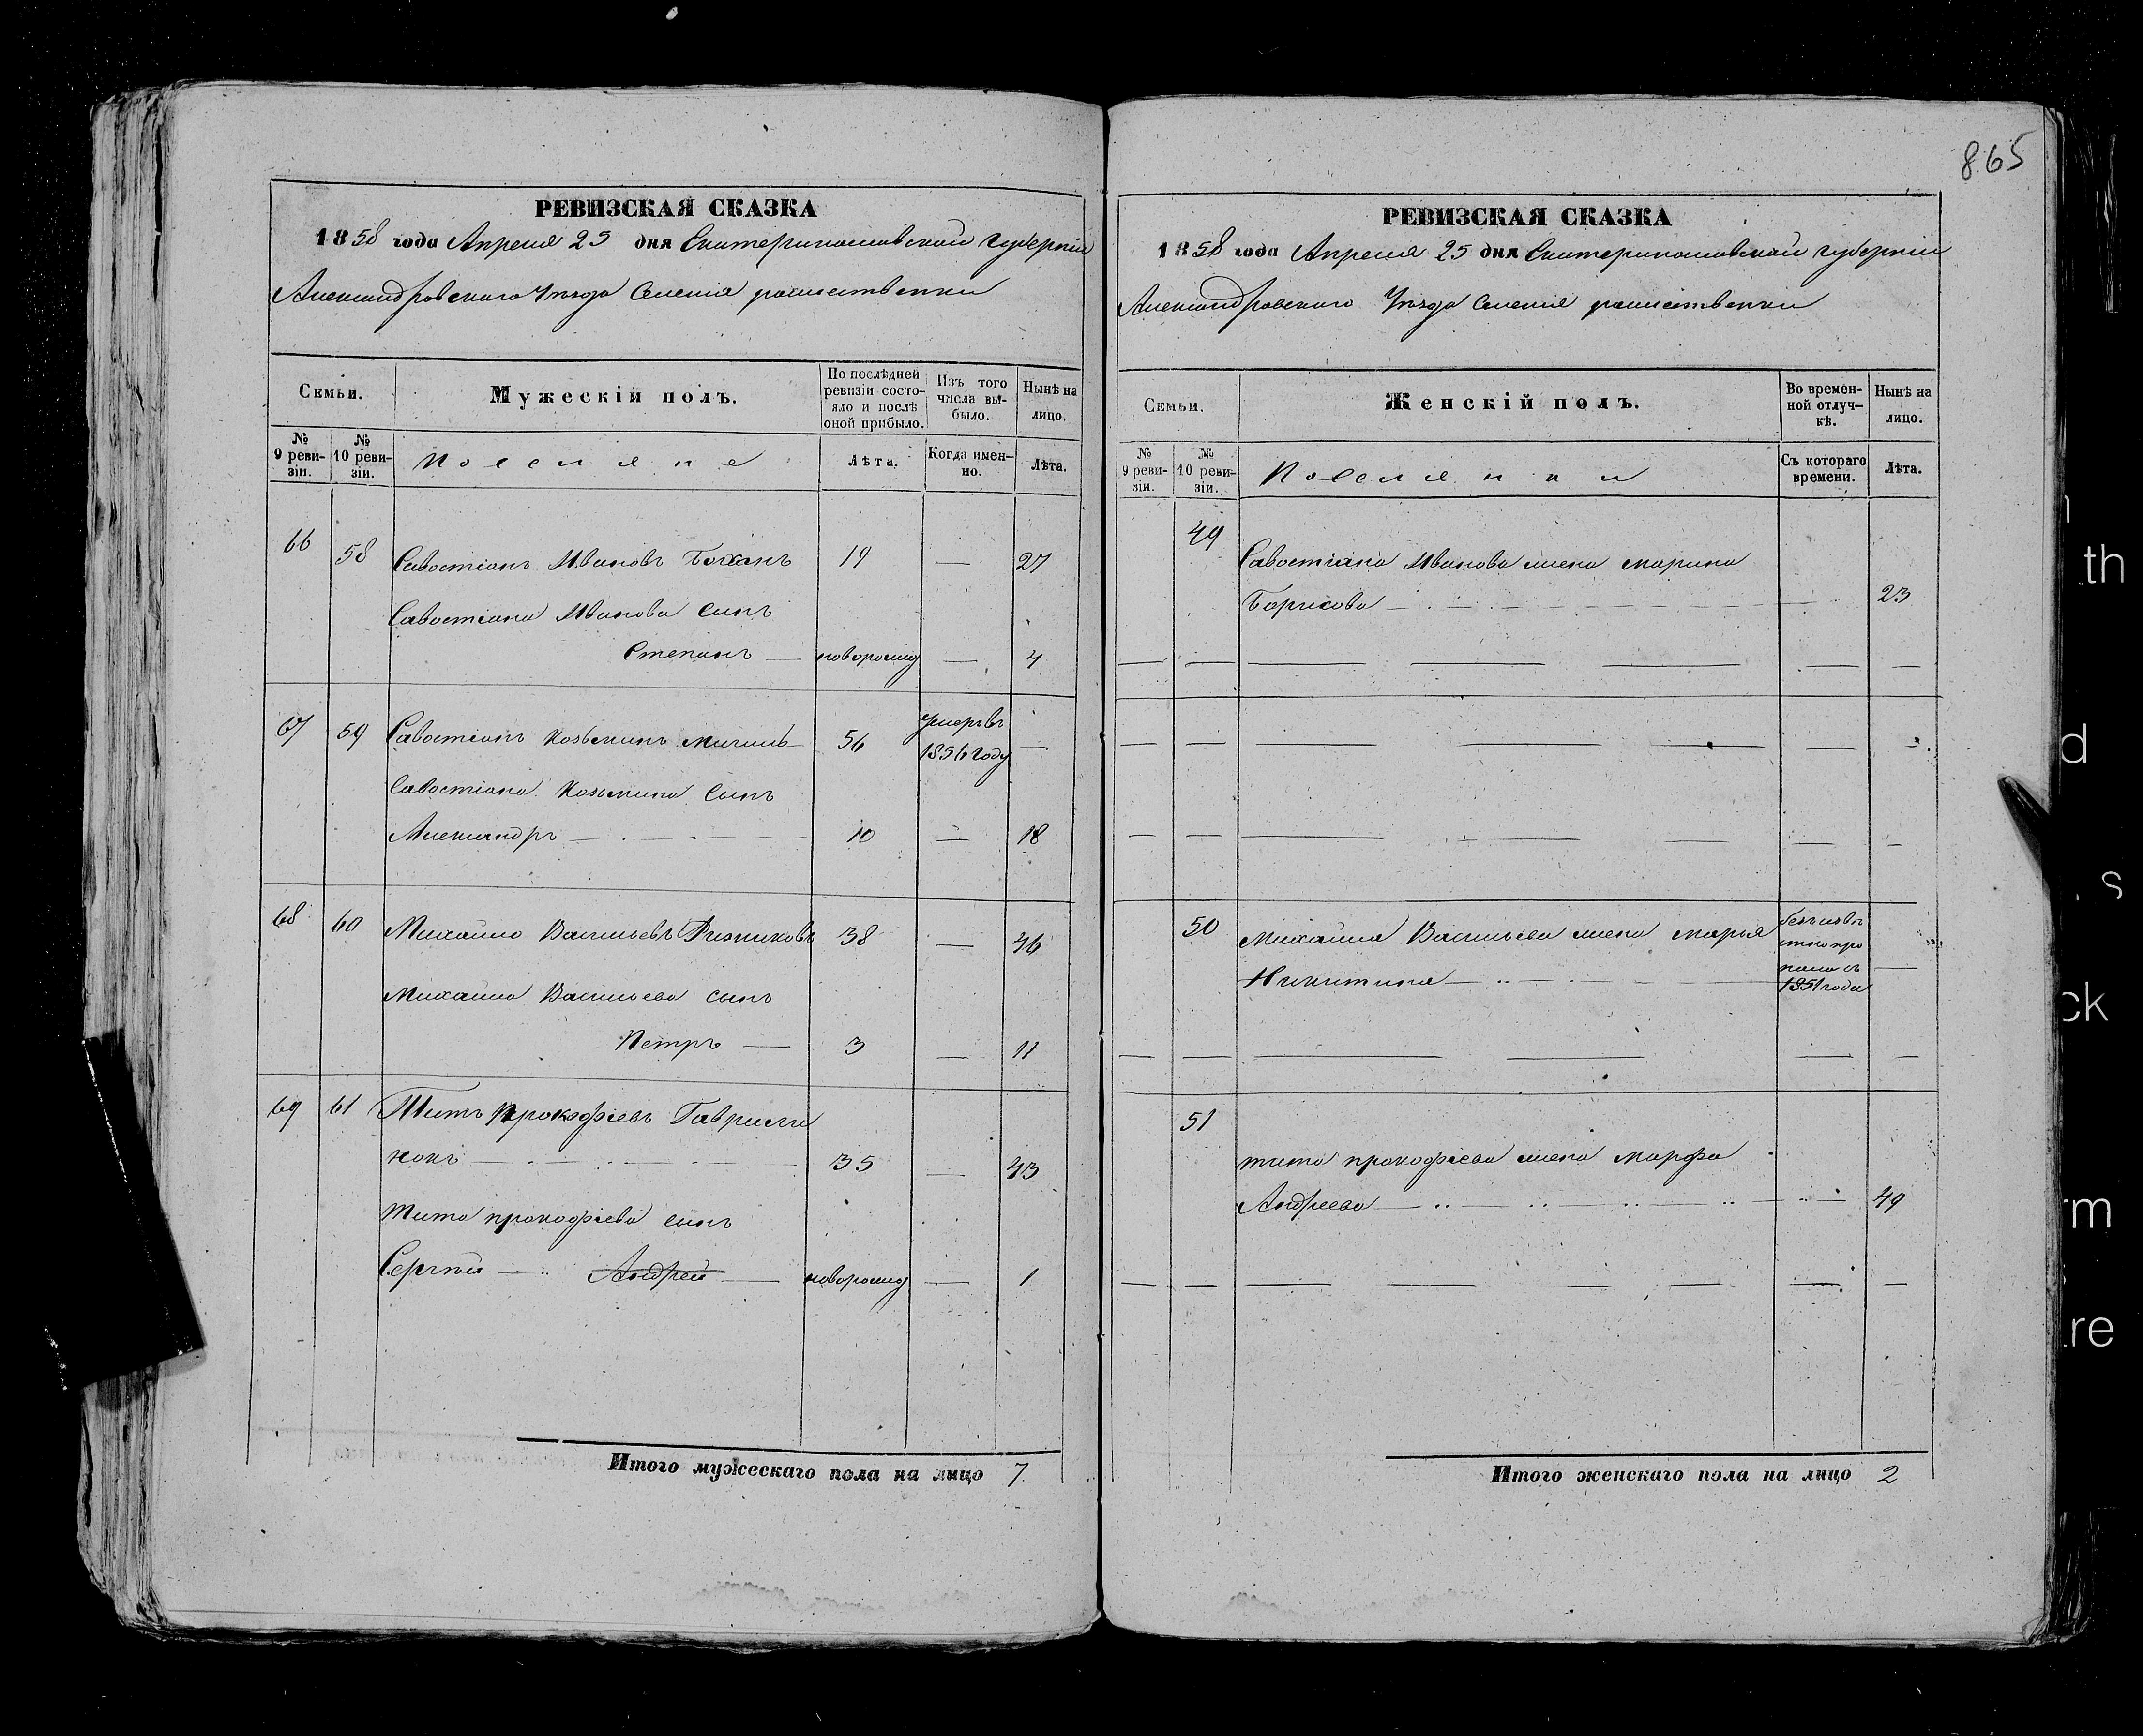 865
РЕВИЗСКАЯ СКАЗКА
1858 года Апреля 25 дня Екатеринославской губерніи
Александровскаго Уѣзда Селенія рошественки
Семьи.
Мужескій полъ.
По послѣдней ревизіи состояло и послѣ оной прибыло.
Изъ того числа выбыло.
Нынѣ на лицо.
№ 9 ревизіи.
№ 10 ревизіи.
Поселяне
Лѣта.
Когда именно.
Лѣта.
66 58 Савостіанъ Ивановъ 19 — 27
Савостіана Иванова сынъ
Степанъ — новорожд — 4
67 59 Савостіанъ Козьминъ 56 умеръ въ 1856 году —
Савостіана Козьмина сынъ
Александръ — 10 — 18
68 60 Михайло Васильевъ Резниковъ 38 — 46
Михайла Васильева сынъ
Петръ — 3 — 11
69 61 Титъ Прокофіевъ Гаврили
нокъ — 35 — 43
Тита прокофіева сынъ
Сергѣй — Андрей — новорожд — 1
Итого мужескаго пола на лицо 7
РЕВИЗСКАЯ СКАЗКА
1858 года Апреля 25 дня Екатеринославской губерніи
Александровскаго Уѣзда Селенія рошественки
Семьи.
Женскій полъ.
Во временной отлучкѣ.
Нынѣ на лицо.
№ 9 ревизіи.
№ 10 ревизіи.
Поселянки
Съ котораго времени.
Лѣта.
49 Савостіана Иванова жена марина
Борисова — 23
50 Михайла Васильева жена марья
Никитина — безъизвѣстно пропала съ 1851 года —
51
тита прокофіева жена марфа
Андреева — 49
Итого женскаго пола на лицо 2
th
d
s
ck
rm
re